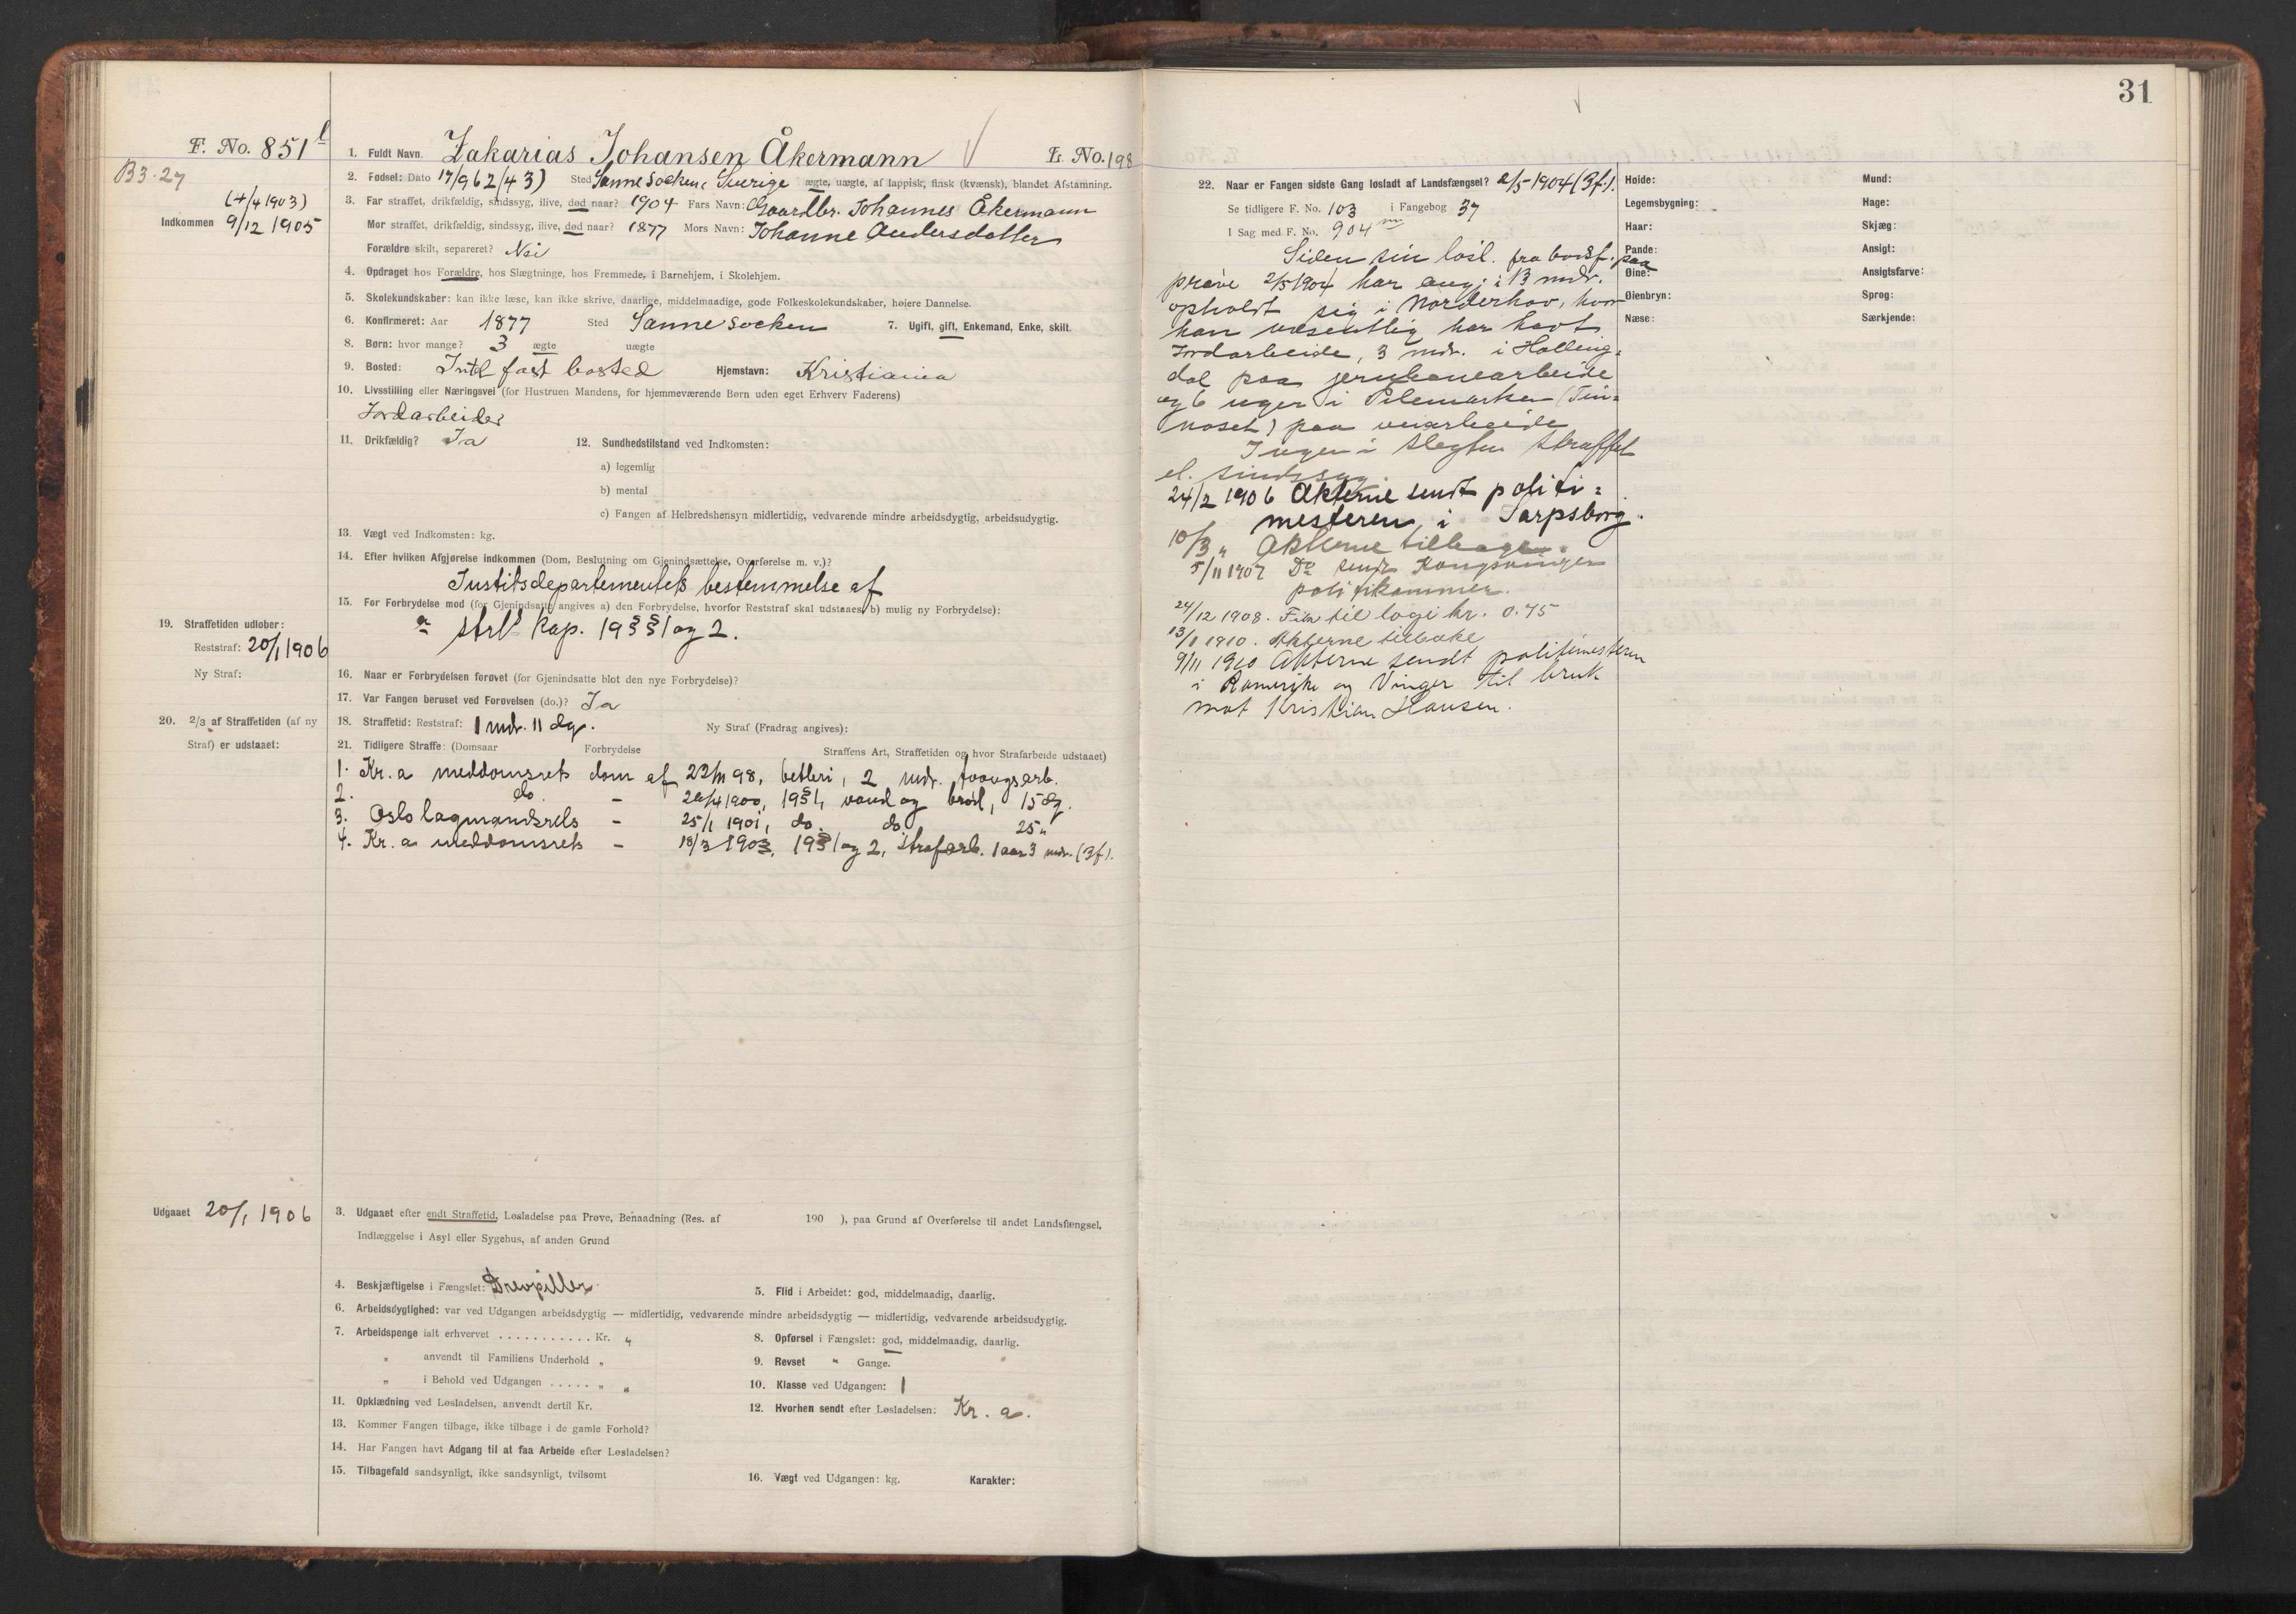 31
F. No. 851 b
B3-27
(4/4 1903)
Indkommen 9/12 1905
1. Fuldt Navn. Zakarias Johansen Åkermann L. No. 198
2. Fødsel: Dato 17/9 62 (43) Sted Sanne Socken, Sverige ægte, uægte, af lappisk, finsk (kvænsk), blandet Afstamning.
3. Far straffet, drikfældig, sindssyg, ilive, død naar? 1904 Fars Navn: Gaardbr. Johannes Åkermann
Mor straffet, drikfældig, sindssyg, ilive, død naar? 1877 Mors Navn: Johanne Andersdatter
Forældre skilt, separeret? Nei
4. Opdraget hos Forældre, hos Slægtninge, hos Fremmede, i Barnehjem, i Skolehjem.
5. Skolekundskaber: kan ikke læse, kan ikke skrive, daarlige, middelmaadige, gode Folkeskolekundskaber, høiere Dannelse.
6. Konfirmeret: Aar 1877 Sted Sanne socken 7. Ugift, gift, Enkemand, Enke, skilt.
8. Børn: hvor mange? 3 ægte uægte
9. Bosted: Intet fast bosted Hjemstavn: Kristiania
10. Livsstilling eller Næringsvei (for Hustruen Mandens, for hjemmeværende Børn uden eget Erhverv Faderens)
Jordarbeider
11. Drikfældig? Ja 12. Sundhedstilstand ved Indkomsten:
a) legemlig
b) mental
c) Fangen af Helbredshensyn midlertidig, vedvarende mindre arbeidsdygtig, arbeidsudygtig.
13. Vægt ved Indkomsten: kg.
14. Efter hvilken Afgjørelse indkommen (Dom, Beslutning om Gjenindsættelse, Overførelse m. v.)?
Justitsdepartementets bestemmelse af
15. For Forbrydelse mod (for Gjenindsatte angives a) den Forbrydelse, hvorfor Reststraf skal udstaaes, b) mulig ny Forbrydelse):
a strl's kap. 19 §§ 1 og 2.
19. Straffetiden udløber:
Reststraf: 20/1 1906
Ny Straf:
16. Naar er Forbrydelsen forøvet (for Gjenindsatte blot den nye Forbrydelse)?
17. Var Fangen beruset ved Forøvelsen (do.)? Ja
20. 2/3 af Straffetiden (af ny
Straf) er udstaaet:
18. Straffetid: Reststraf: 1 mdr. 11 dg. Ny Straf (Fradrag angives):
21. Tidligere Straffe: (Domsaar Forbrydelse Straffens Art, Straffetiden og hvor Strafarbeide udstaaet)
1. Kr.a meddomsrets dom af 23/11 98, betleri, 2 mdr. tvangsarb.
2. do - 24/4 1900, 19 § 1, vand og brød, 15 dg.
3. Oslo lagmandsrets - 25/1 1901, do. do. 25 "
4. Kr.a meddomsrets - 18/3 1903, 19 § 1 og 2, strafarb. 1 aar 3 mdr. (Bf).
Udgaaet 20/1 1906
3. Udgaaet efter endt Straffetid, Løsladelse paa Prøve, Benaadning (Res. af 190 ), paa Grund af Overførelse til andet Landsfængsel,
Indlæggelse i Asyl eller Sygehus, af anden Grund
4. Beskjæftigelse i Fængslet: Drevpiller. 5. Flid i Arbeidet: god, middelmaadig, daarlig.
6. Arbeidsdygtighed: var ved Udgangen arbeidsdygtig — midlertidig, vedvarende mindre arbeidsdygtig — midlertidig, vedvarende arbeidsudygtig.
7. Arbeidspenge ialt erhvervet . . . . . . . . . . . Kr. " 8. Opførsel i Fængslet: god, middelmaadig, daarlig.
" anvendt til Familiens Underhold " 9. Revset " Gange.
" i Behold ved Udgangen . . . . . " " 10. Klasse ved Udgangen: 1
11. Opklædning ved Løsladelsen, anvendt dertil Kr. 12. Hvorhen sendt efter Løsladelsen: Kr.a.
13. Kommer Fangen tilbage, ikke tilbage i de gamle Forhold?
14. Har Fangen havt Adgang til at faa Arbeide efter Løsladelsen?
15. Tilbagefald sandsynligt, ikke sandsynligt, tvilsomt 16. Vægt ved Udgangen: kg. Karakter:
22. Naar er Fangen sidste Gang løsladt af Landsfængsel? 2/5 - 1904 (Bf.).
Se tidligere F. No. 103 i Fangebog 37
I Sag med F. No. 904 m
Siden sin løsl. fra bodsf. paa
prøve 2/5 1904 har ang. i 13 mdr.
opholdt sig i Norderhov, hvor
han væsentlig har havt
Jordarbeide, 3 mdr. i Halling-
dal paa jernbanearbeide
og 6 uger i Telemarken (Tin-
noset) paa veiarbeide
Ingen i slegten straffet
el. sindssyg.
24/2 1906 Akterne sendt politi-
mesteren, i Sarpsborg.
10/3 " Akterne tilbage.
5/11 1907 Do sendt Kongsvinger
politikammer.
24/12 1908. Fik til logi kr. 0.75
13/1 1910. Akterne tilbake
9/11 1910 Akterne sendt politimesteren
i Romerike og Vinger til bruk
mot Kristian Hansen.
Høide: Mund:
Legemsbygning: Hage:
Haar: Skjæg:
Pande: Ansigt:
Øine: Ansigtsfarve:
Øienbryn: Sprog:
Næse: Særkjende: